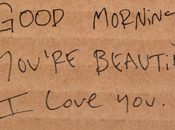 GOOD MORNING
YOU'RE BEAUTIF
I LOVE YOU.